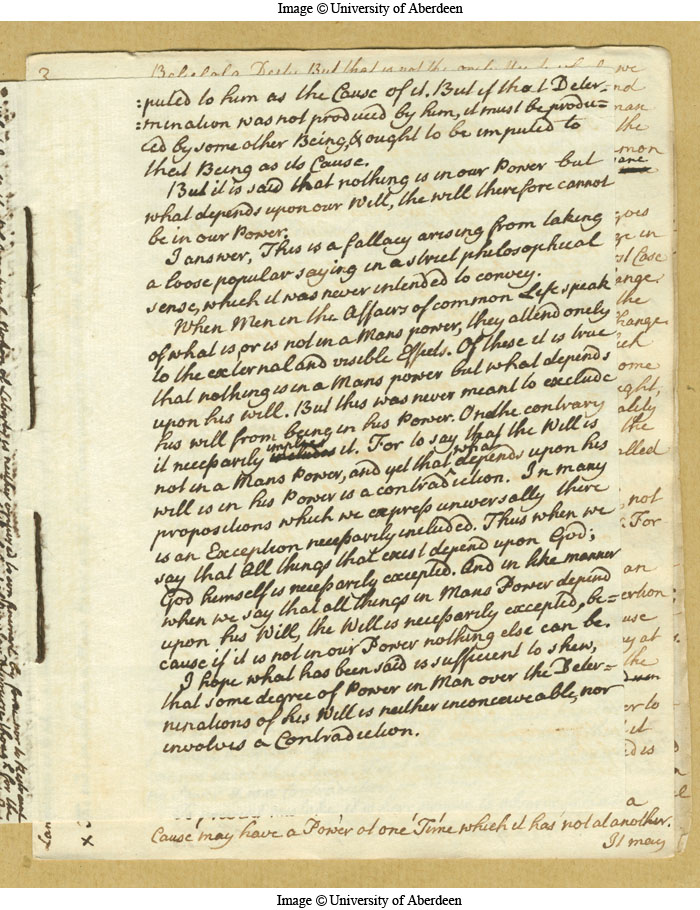 Image © University of Aberdeen
3
But that is not the only
:puted to him as the Cause of it. But if that Deter-
:mination was not produced by him, it must be produ-
ced by some other Being, & ought to be imputed to
that Being as its Cause.
But it is said that nothing is in our Power but
what depends upon our Will, the will therefore cannot
be in our Power.
I answer, This is a fallacy arising from taking
a loose popular saying in a strict philosophical
sense, which it was never intended to convey.
When Men in the Affairs of common Life speak
of what is or is not in a Mans power, they attend onely
to the external and visible Effects. Of these it is true
that nothing is in a Mans power but what depends
upon his will. But this was never meant to exclude
his will from being in his Power. On the contrary
it necessarily implies it. For to say that the Will is
not in a Mans Power, and yet that what depends upon his
will is in his Power is a contradiction. In many
propositions which we express universally there
is an Exception necessarily included. Thus when we
say that All things that exist depend upon God;
God himself is necessarily excepted. And in like manner
when we say that all things in Mans Power depend
upon his Will, the Will is necessarily excepted, be=
cause if it is not in our Power nothing else can be.
I hope what has been said is sufficient to shew,
that some degree of Power in Man over the Deter-
minations of his Will is neither inconceiveable, nor
involves a Contradiction.
a
Cause may have a Power at one Time which it has not at another.
It may
Image © University of Aberdeen